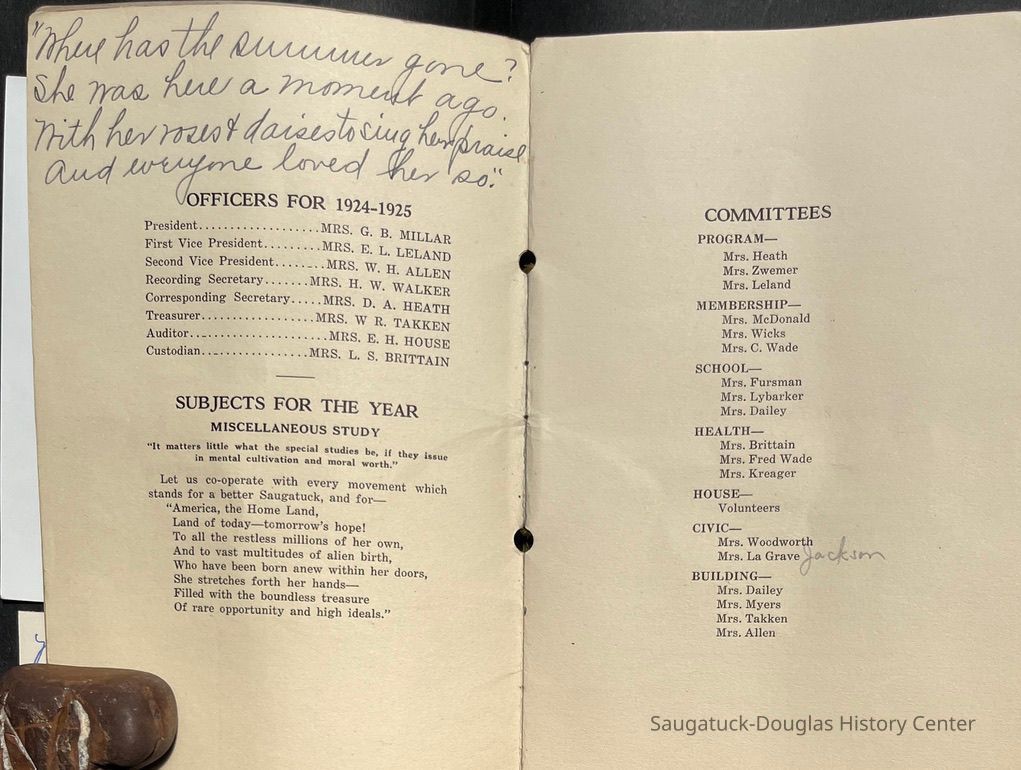 "Where has the summer gone?
She was here a moment ago.
With her roses & daises to sing her praise
And everyone loved her so."
OFFICERS FOR 1924-1925
President....................MRS. G. B. MILLAR
First Vice President..........MRS. E. L. LELAND
Second Vice President........MRS. W. H. ALLEN
Recording Secretary.......MRS. H. W. WALKER
Corresponding Secretary.....MRS. D. A. HEATH
Treasurer...................MRS. W R. TAKKEN
Auditor.......................MRS. E. H. HOUSE
Custodian..................MRS. L. S. BRITTAIN
SUBJECTS FOR THE YEAR
MISCELLANEOUS STUDY
"It matters little what the special studies be, if they issue
in mental cultivation and moral worth."
Let us co-operate with every movement which
stands for a better Saugatuck, and for—
"America, the Home Land,
Land of today—tomorrow's hope!
To all the restless millions of her own,
And to vast multitudes of alien birth,
Who have been born anew within her doors,
She stretches forth her hands—
Filled with the boundless treasure
Of rare opportunity and high ideals."
COMMITTEES
PROGRAM—
Mrs. Heath
Mrs. Zwemer
Mrs. Leland
MEMBERSHIP—
Mrs. McDonald
Mrs. Wicks
Mrs. C. Wade
SCHOOL—
Mrs. Fursman
Mrs. Lybarker
Mrs. Dailey
HEALTH—
Mrs. Brittain
Mrs. Fred Wade
Mrs. Kreager
HOUSE—
Volunteers
CIVIC—
Mrs. Woodworth
Mrs. La Grave Jackson
BUILDING—
Mrs. Dailey
Mrs. Myers
Mrs. Takken
Mrs. Allen
Saugatuck-Douglas History Center